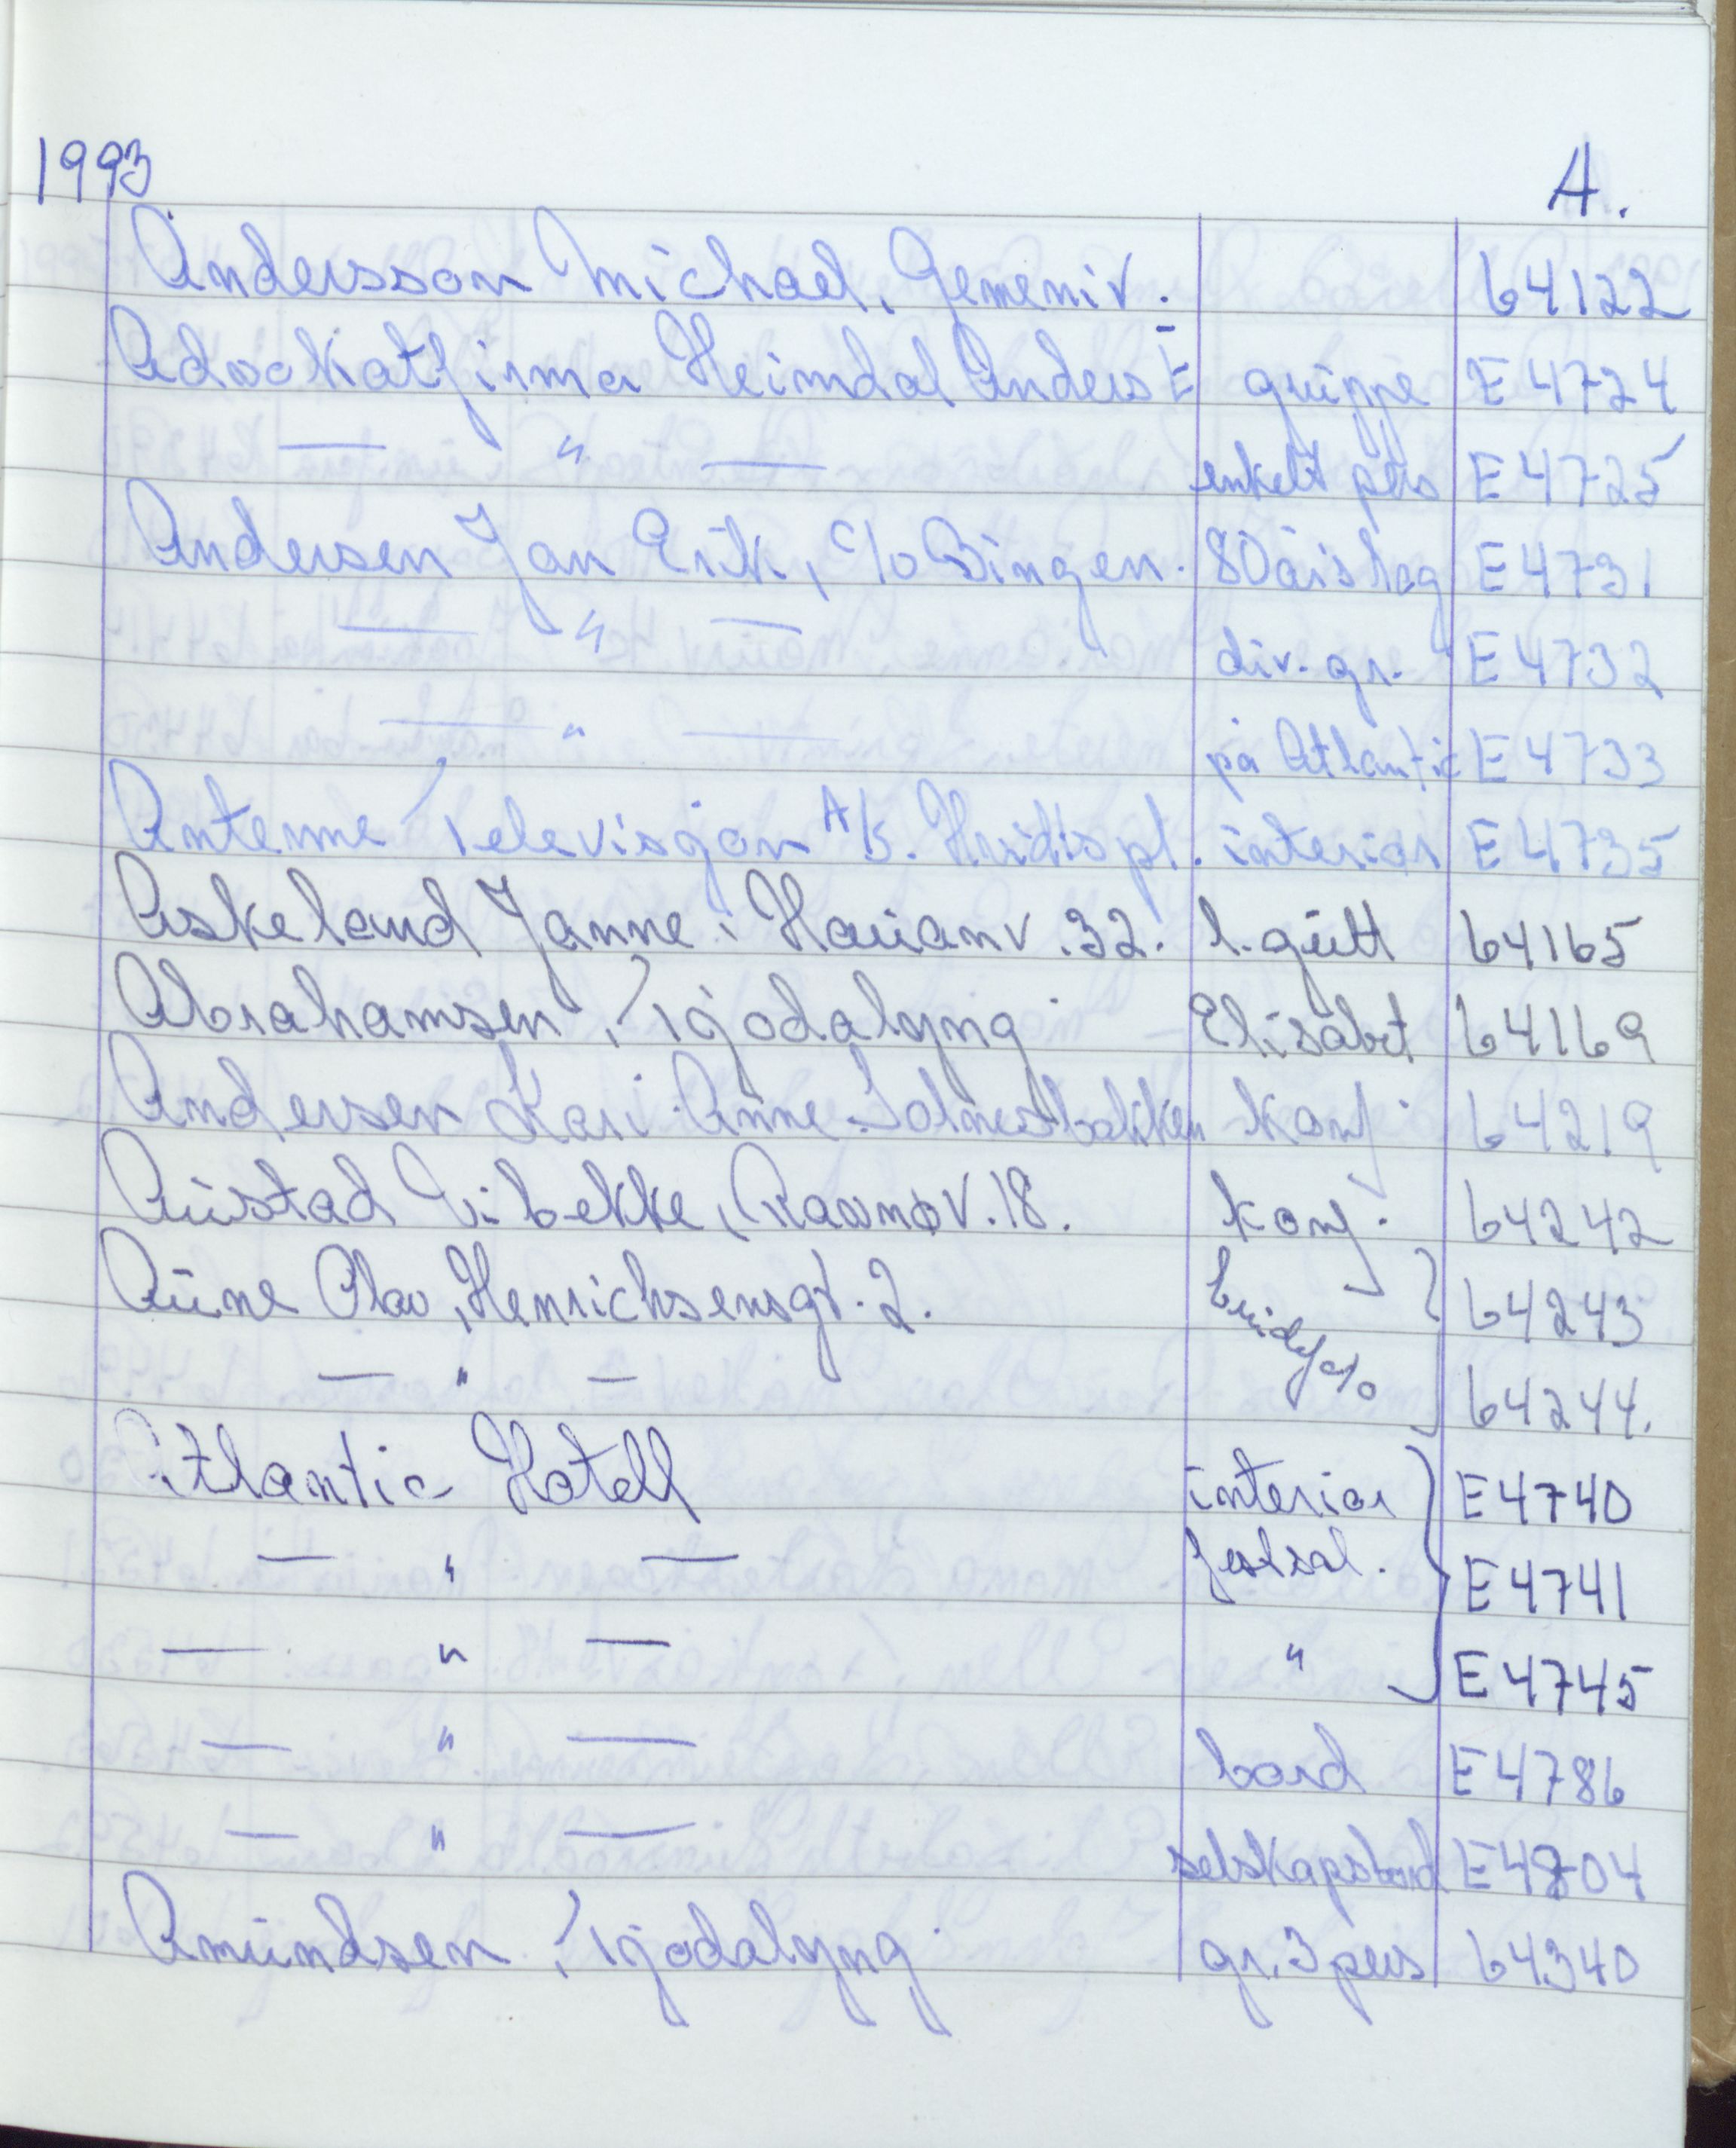 1993 A.
Andersson Michael, Gemeniv. 64122
Advokatfirma Heimdal Anders E gruppe E 4724
— " — enkelt pers E 4725
Andersen Jan Erik, c/o Bingen. 80årslag E 4731
— " — div. gr. E 4732
— " — på Atlantic E 4733
Antenne Televisjon A/S. pl. interiør E 4735
Askeland Janne, Hauanv. 32. l. gutt 64165
Abrahamsen, Tjodalyng Elisabet 64169
Andersen Kari Anne konf. 64219
Austad Vibekke, Ravnøv. 18. konf. 64242
Aune Olav, Henrichsensgt. 2. 64243
— " — 64244.
Atlantic Hotell interiør E 4740
— " — festsal. E 4741
— " — " E 4745
— " — bord E 4786
— " — selskapsbord E 4804
Amundsen, Tjodalyng gr. 3 pers 64340